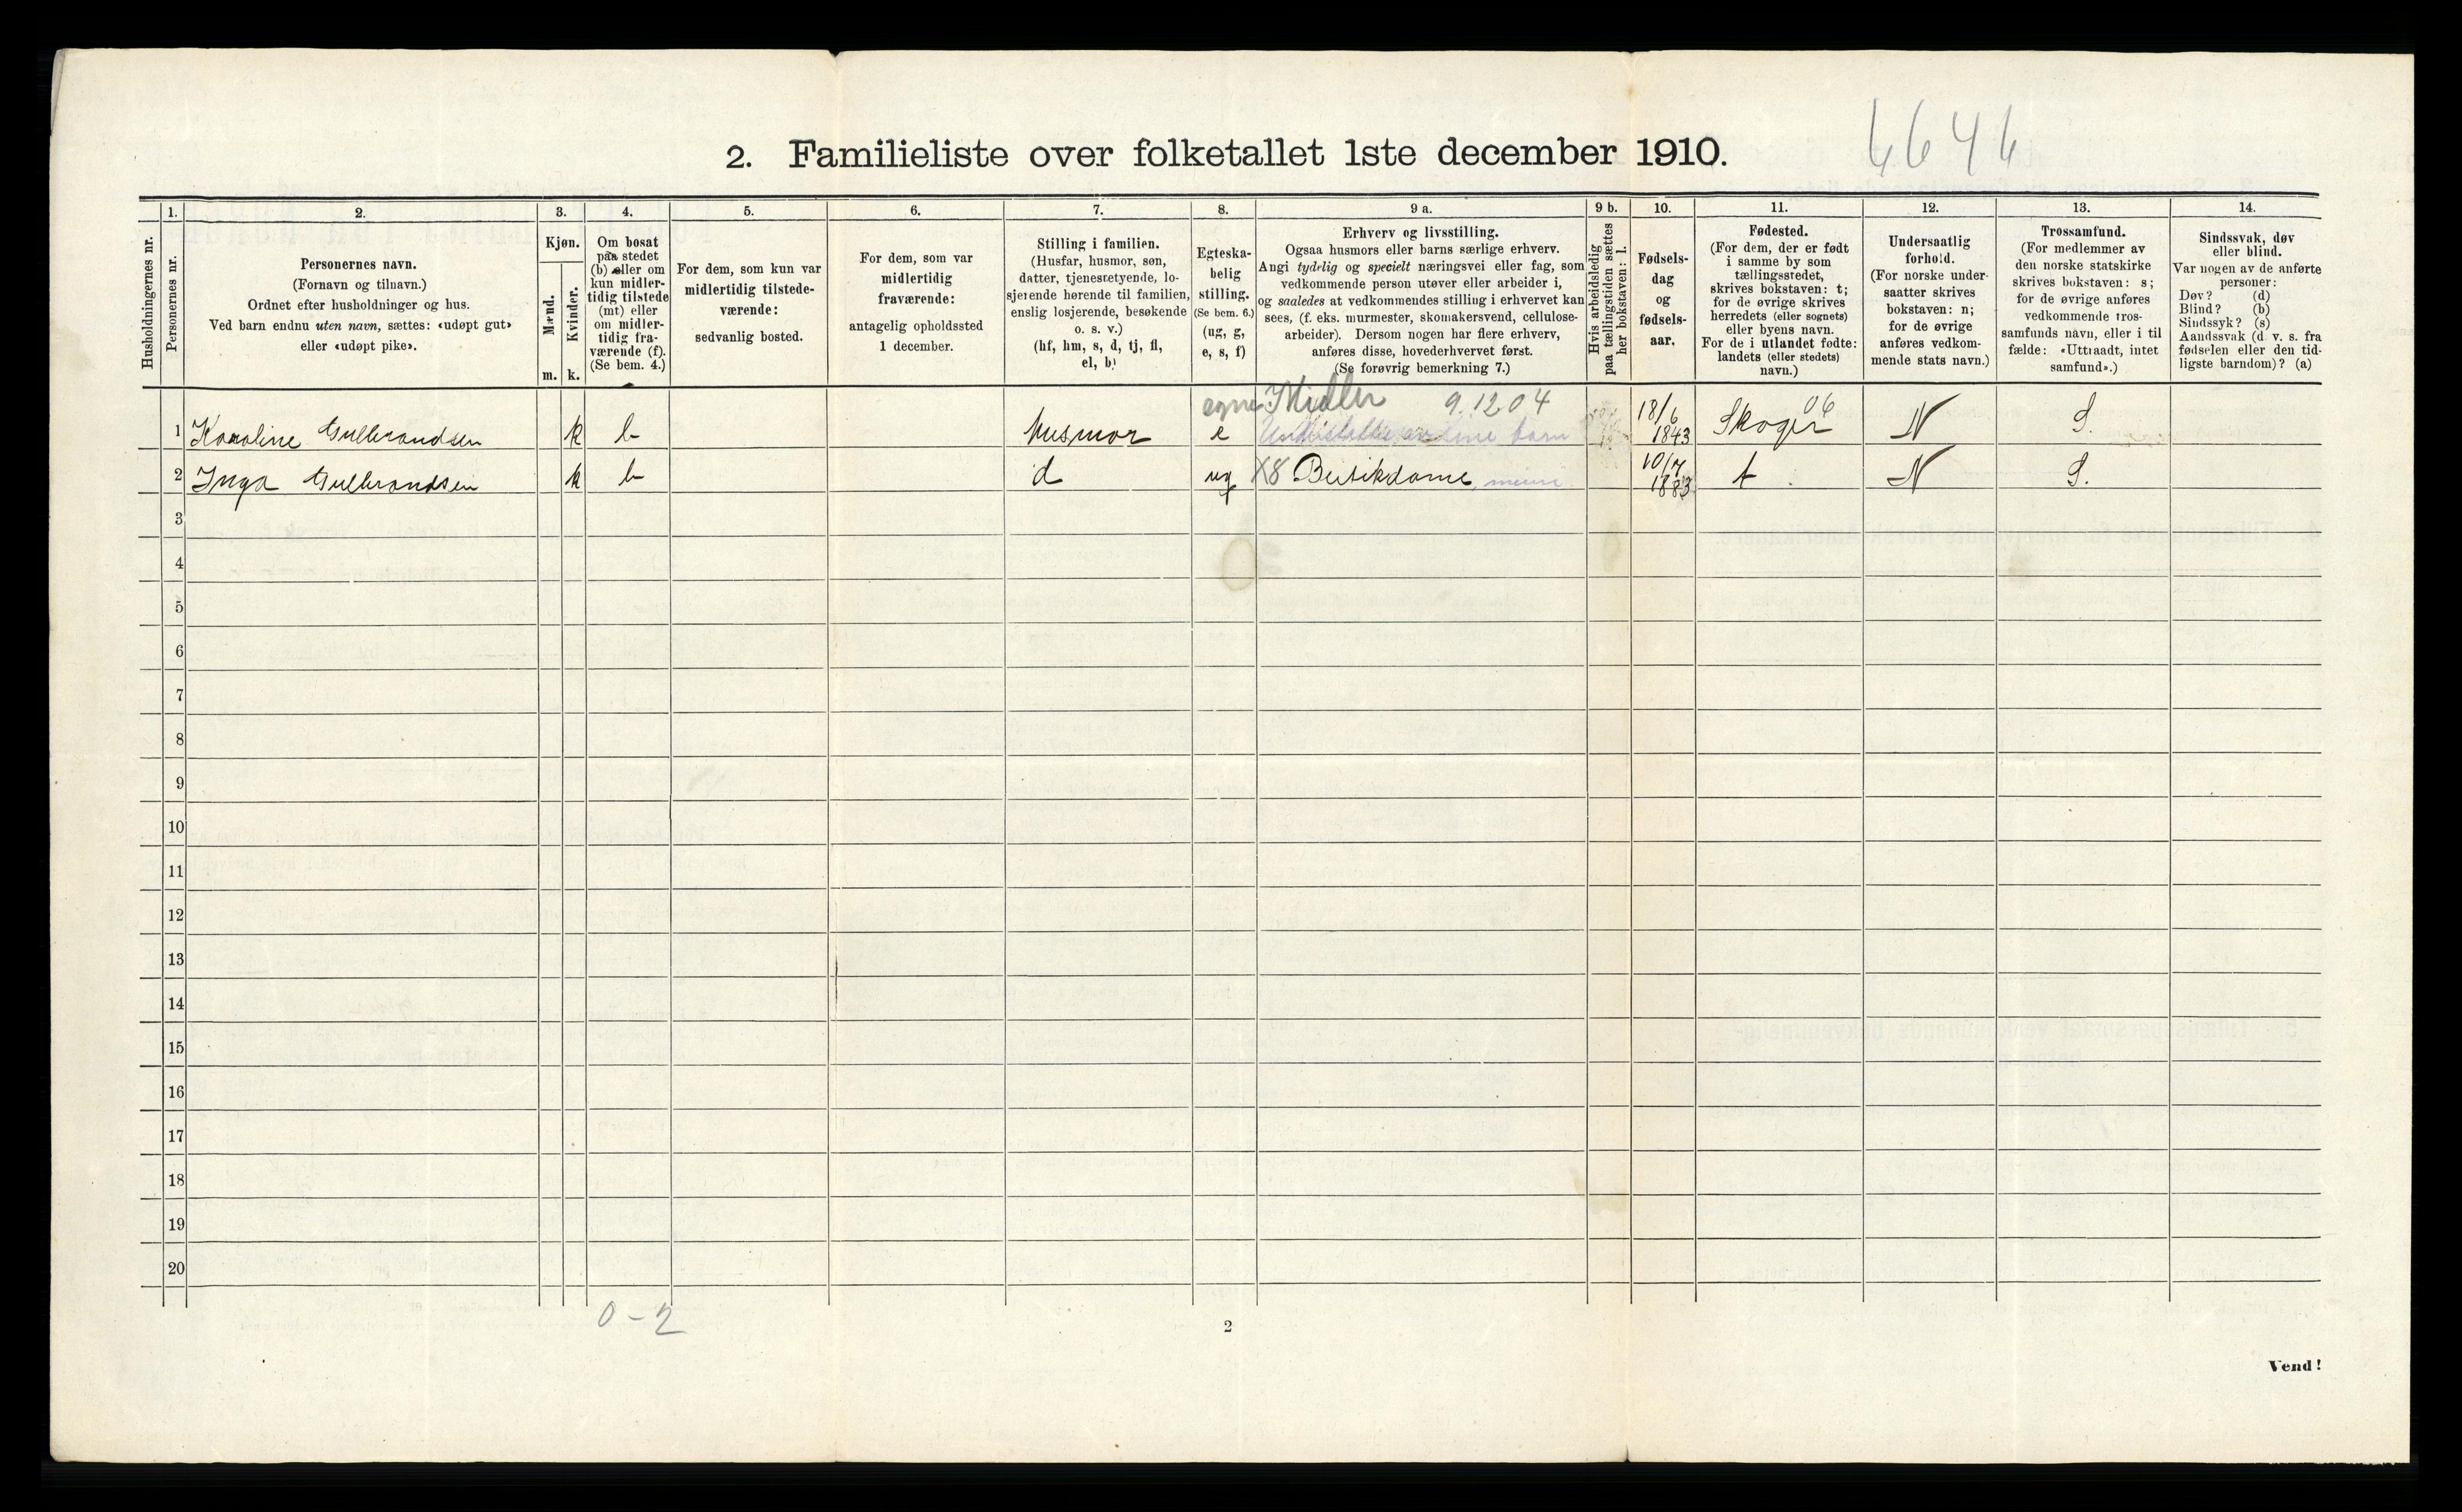 6646
2. Familieliste over folketallet 1ste december 1910.
Husholdningernes nr.
1.
Personernes nr.
2.
Personernes navn.
(Fornavn og tilnavn.)
Ordnet efter husholdninger og hus.
Ved barn endnu uten navn, sættes: «udøpt gut»
eller «udøpt pike».
3.
Kjøn.
Mænd.
m.
Kvinder.
k.
4.
Om bosat
paa stedet
(b) eller om
kun midler-
tidig tilstede
(mt) eller
om midler-
tidig fra-
værende (f).
(Se bem. 4.)
5.
For dem, som kun var
midlertidig tilstede-
værende:
sedvanlig bosted.
6.
For dem, som var
midlertidig
fraværende:
antagelig opholdssted
1 december.
7.
Stilling i familien.
(Husfar, husmor, søn,
datter, tjenestetyende, lo-
sjerende hørende til familien,
enslig losjerende, besøkende
o. s. v.)
(hf, hm, s, d, tj, fl,
el, b)
8.
Egteska-
belig
stilling.
(Se bem. 6.)
(ug, g,
e, s, f)
9 a.
Erhverv og livsstilling.
Ogsaa husmors eller barns særlige erhverv.
Angi tydelig og specielt næringsvei eller fag, som
vedkommende person utøver eller arbeider i,
og saaledes at vedkommendes stilling i erhvervet kan
sees, (f. eks. murmester, skomakersvend, cellulose-
arbeider). Dersom nogen har flere erhverv,
anføres disse, hovederhvervet først.
(Se forøvrig bemerkning 7.)
9 b.
Hvis arbeidsledig
paa tællingstiden sættes
her bokstaven: l.
10.
Fødsels-
dag
og
fødsels-
aar.
11.
Fødested.
(For dem, der er født
i samme by som
tællingsstedet,
skrives bokstaven: t;
for de øvrige skrives
herredets (eller sognets)
eller byens navn.
For de i utlandet fødte:
landets (eller stedets)
navn.)
12.
Undersaatlig
forhold.
(For norske under-
saatter skrives
bokstaven: n;
for de øvrige
anføres vedkom-
mende stats navn.)
13.
Trossamfund.
(For medlemmer av
den norske statskirke
skrives bokstaven: s;
for de øvrige anføres
vedkommende tros-
samfunds navn, eller i til
fælde: «Uttraadt, intet
samfund».)
14.
Sindssvak, døv
eller blind.
Var nogen av de anførte
personer:
Døv? (d)
Blind? (b)
Sindssyk? (s)
Aandssvak (d. v. s. fra
fødselen eller den tid-
ligste barndom)? (a)
egne Midler 9.12.04
1 Karoline Gulbrandsen k b husmor e Understøttes av sine barn 18/6 1843 Skoger 06 N S.
2 Inga Gulbrandsen k b d ug X8 Butikdame 10/7 1883 t N S.
3
4
5
6
7
8
9
10
11
12
13
14
15
16
17
18
19
20
0-2
2
Vend!